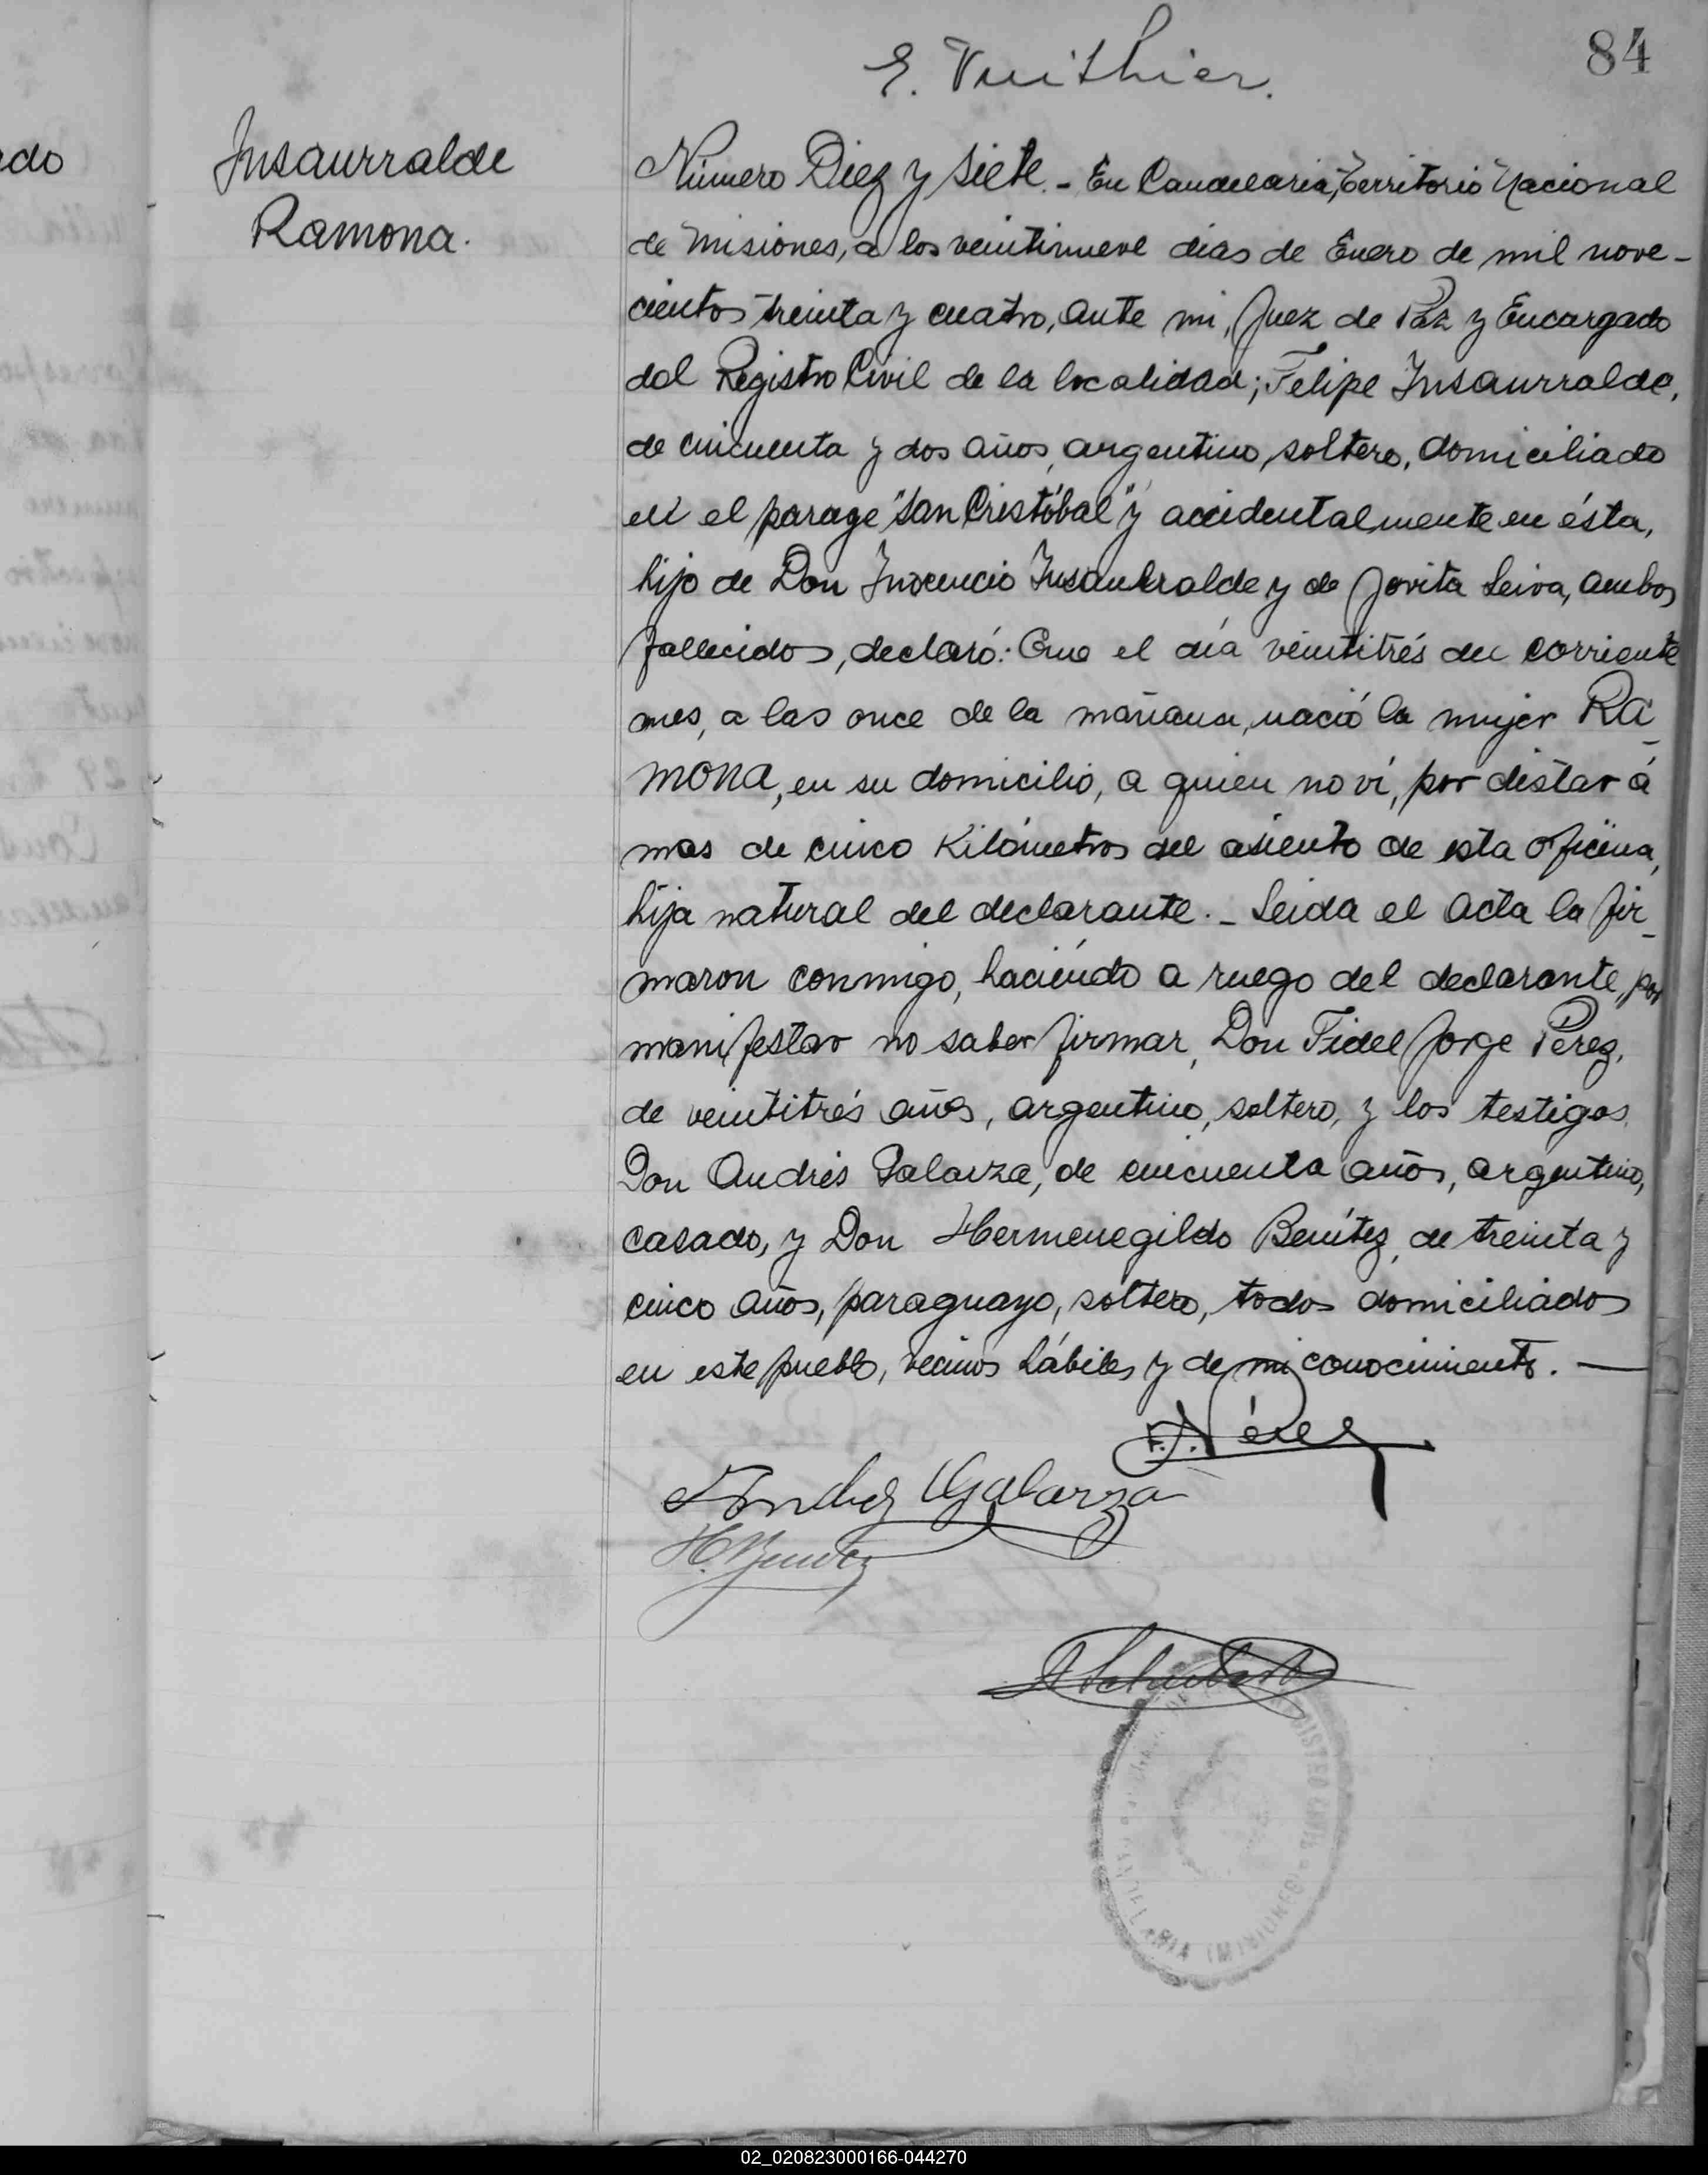 84
E. Vuithier.
ado
Insaurralde
Ramona.
Número Diez y siete.- En Candelaria, Territorio Nacional
de Misiones, a los veintinueve dias de Enero de mil nove-
cientos treinta y cuatro, ante mi, Juez de Paz y Encargado
del Registro Civil de la localidad; Felipe Insaurralde,
de cincuenta y dos años, argentino, soltero, domiciliado
en el parage "San Cristóbal" y accidentalmente en ésta,
hijo de Don Inocencio Insaurralde y de Jovita Leiva, ambos
fallecidos, declaró: Que el día veintitrés del corriente
mes, a las once de la mañana, nació la mujer RA-
MONA, en su domicilio, a quien no ví, por distar á
mas de cinco Kilómetros del asiento de esta oficina,
hija natural del declarante.- Leida el acta la fir-
maron conmigo, haciéndo a ruego del declarante, por
manifestar no saber firmar, Don Fidel Jorge Perez,
de veintitrés años, argentino, soltero, y los testigos
Don Andrés Galarza, de cincuenta años, argentino,
casado, y Don Hermenegildo Benítez, de treinta y
cinco años, paraguayo, soltero, todos domiciliados
en este pueblo, vecinos hábiles y de mi conocimiento. —
F. J. Pérez
Andres Galarza
H. Benitez
REGISTRO CIVIL
(MISIONES)
02_020823000166-044270